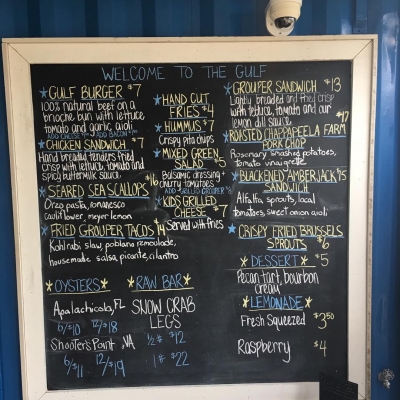 WELCOME TO THE GULF
GULF BURGER $7
100% natural beef on a
brioche bun with lettuce
tomato and garlic aioli
CHICKEN SANDWICH $7
Hand breaded tenders fried
crisp with lettuce, tomato and
spicy buttermilk sauce
SEARED SEA SCALLOPS
Orzo pasta, romanesco
cauliflower, meyer lemon
FRIED GROUPER TACOS $14
Kohlrabi slaw, poblano remoulade,
housemade salsa, picante, cilantro
HAND CUT
FRIES $4
HUMMUS $7
Crispy pita chips
MIXED GREEN
SALAD
Balsamic dressing +
cherry tomatoes
KIDS GRILLED
CHEESE $7
Served with fries
GROUPER SANDWICH $13
Lightly breaded and fried crisp
with lettuce, tomato and our
lemon dill sauce
ROASTED CHAPPAPEELA FARM
PORK CHOP $17
Rosemary smashed potatoes,
tomato vinaigrette
BLACKENED AMBERJACK $15
SANDWICH
Alfalfa sprouts, local
tomatoes, sweet onion aioli
CRISPY FRIED BRUSSELS
SPROUTS $6
DESSERT $5
Pecan tart, bourbon
cream
LEMONADE
Fresh Squeezed $3.50
Raspberry $4
OYSTERS
Apalachicola, FL
6/$10 12/$18
Shooter's Point, VA
6/$11 12/$19
RAW BAR
SNOW CRAB
LEGS
½# $12
1# $22